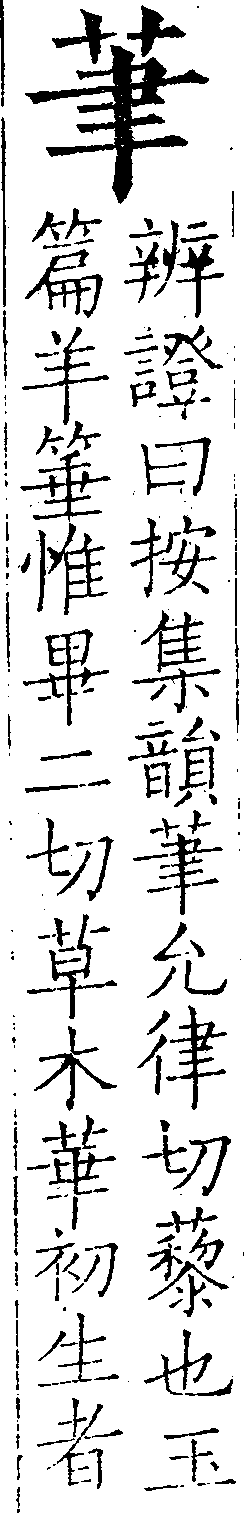 茟
辨證曰按集韻茟允律切藜也玉
篇羊箠惟畢二切草木華初生者